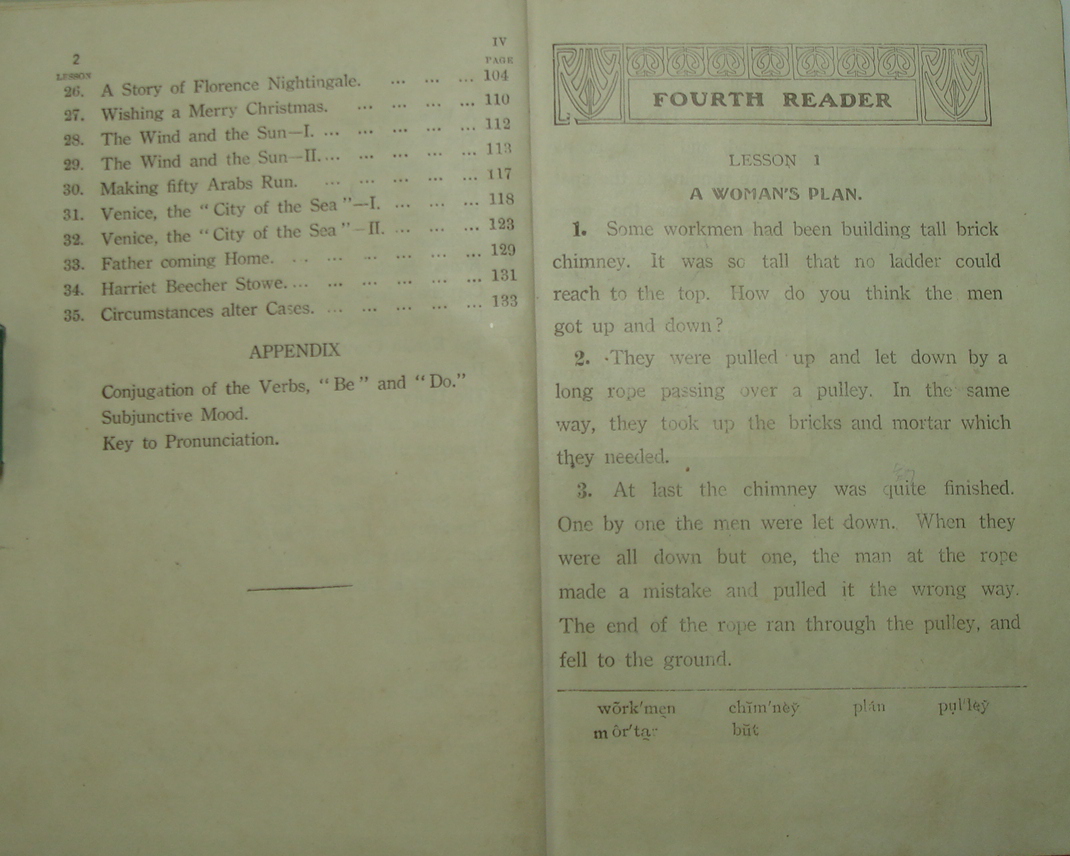 2
IV
LESSON
PAGE
26. A Story of Florence Nightingale. ... ... ... 104
27. Wishing a Merry Christmas. ... ... ... ... 110
28. The Wind and the Sun—I. ... ... ... ... ... 112
29. The Wind and the Sun—II.... ... ... ... ... 113
30. Making fifty Arabs Run. ... ... ... ... ... 117
31. Venice, the "City of the Sea"—I. ... ... ... ... 118
32. Venice, the "City of the Sea"—II. ... ... ... ... 123
33. Father coming Home. ... ... ... ... ... ... 129
34. Harriet Beecher Stowe.... ... ... ... ... ... 131
35. Circumstances alter Cases. ... ... ... ... ... 133
APPENDIX
Conjugation of the Verbs, "Be" and "Do."
Subjunctive Mood.
Key to Pronunciation.
FOURTH READER
LESSON 1
A WOMAN'S PLAN.
1. Some workmen had been building tall brick
chimney. It was so tall that no ladder could
reach to the top. How do you think the men
got up and down?
2. They were pulled up and let down by a
long rope passing over a pulley. In the same
way, they took up the bricks and mortar which
they needed.
3. At last the chimney was quite finished.
One by one the men were let down. When they
were all down but one, the man at the rope
made a mistake and pulled it the wrong way.
The end of the rope ran through the pulley, and
fell to the ground.
wõrk'men chĭm'nĕy̆ plăn pu̇l'lĕy̆
môr'ta̤r bŭt